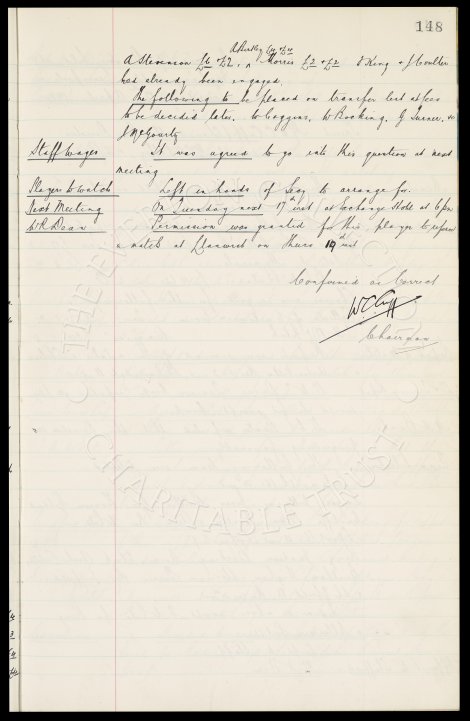 148
A Burtley £4 + £4
A Stevenson £6 + £2, ^ Morris £2 + £2 J King + J Coulter
had already been engaged.
The following to be placed on transfer list at fees
to be decided later. W Coggins, W Booking, G Turner, &
J McGourty
Staff Wages It was agreed to go into this question at next
meeting
Players to watch Left in hands of Secy to arrange for.
Next Meeting On Tuesday next 17th inst at Exchange Hotel at 6 pm
W R Dean Permission was granted for this player to referee
a match at Llanwrst on Thurs 19th inst
Confirmed as Correct
W C Cuff
Chairman
THE EVERTON
CHARITABLE TRUST